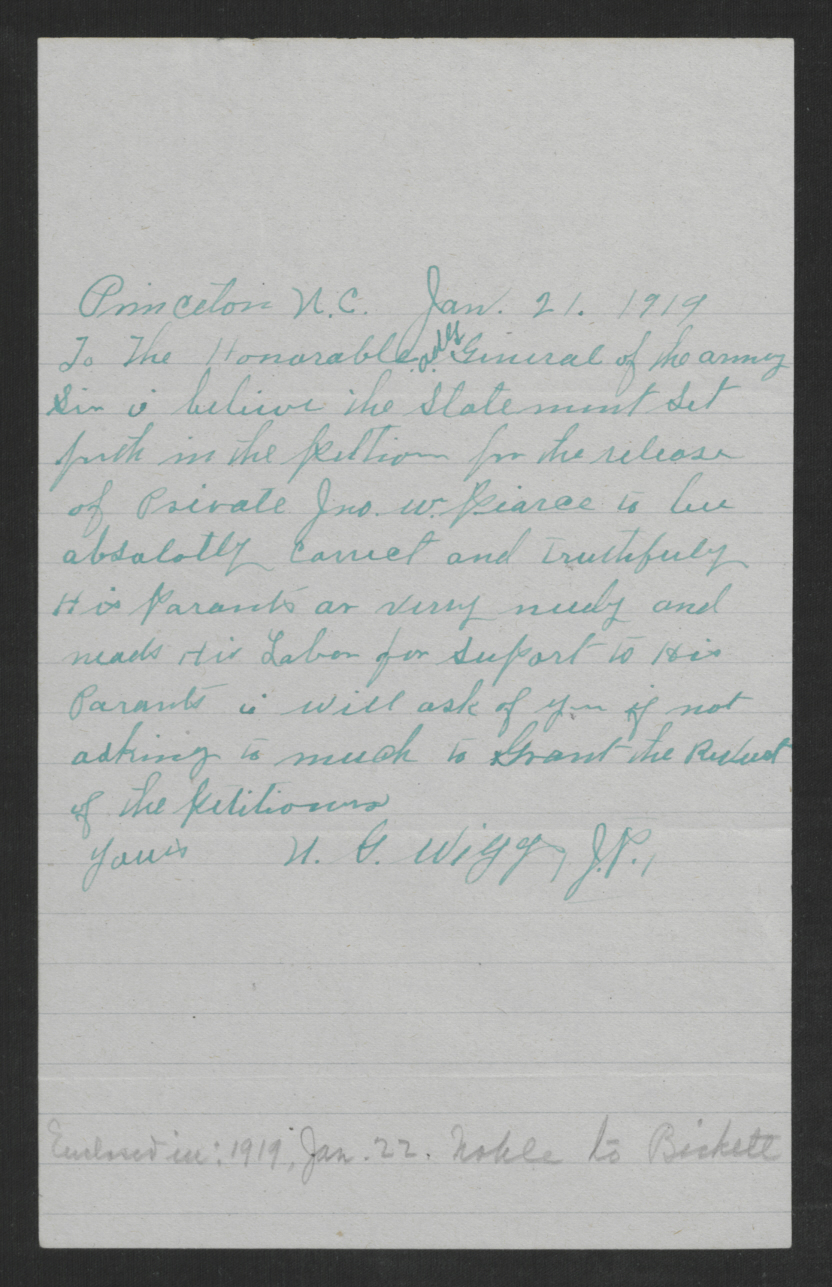 Princeton N.C. Jan. 21. 1919
To The Honorable adj General of the army
Sir i believe the Statement Set
forth in the Petition for the release
of Private Jno. W. Piarce to be
absalotly Correct and Truthfuly
His Parants ar verry needy and
neads His Labor for Suport to His
Parants i will ask of you if not
asking to much to Grant the
of the Petitioners
Yours U. G. Wiggs, J.P.,
Enclosed in: 1919, Jan. 22. Noble to Bickett